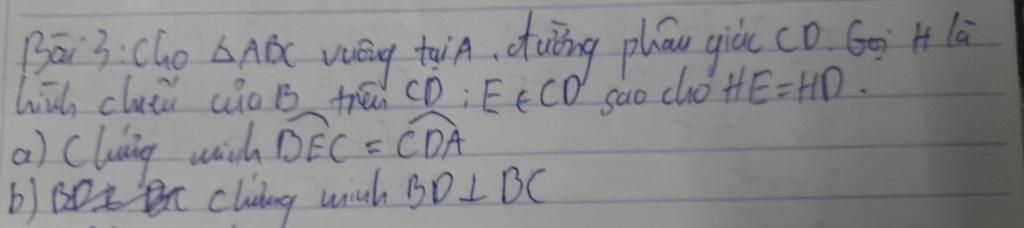 Bài 3: Cho △ABC vuông tại A, đường phân giác CD. Gọi H là
hình chiếu của B trên CD; E ∈ CD sao cho HE = HD.
a) Chứng minh DEC = CDA
b) BD ⊥ BC chứng minh BD ⊥ BC